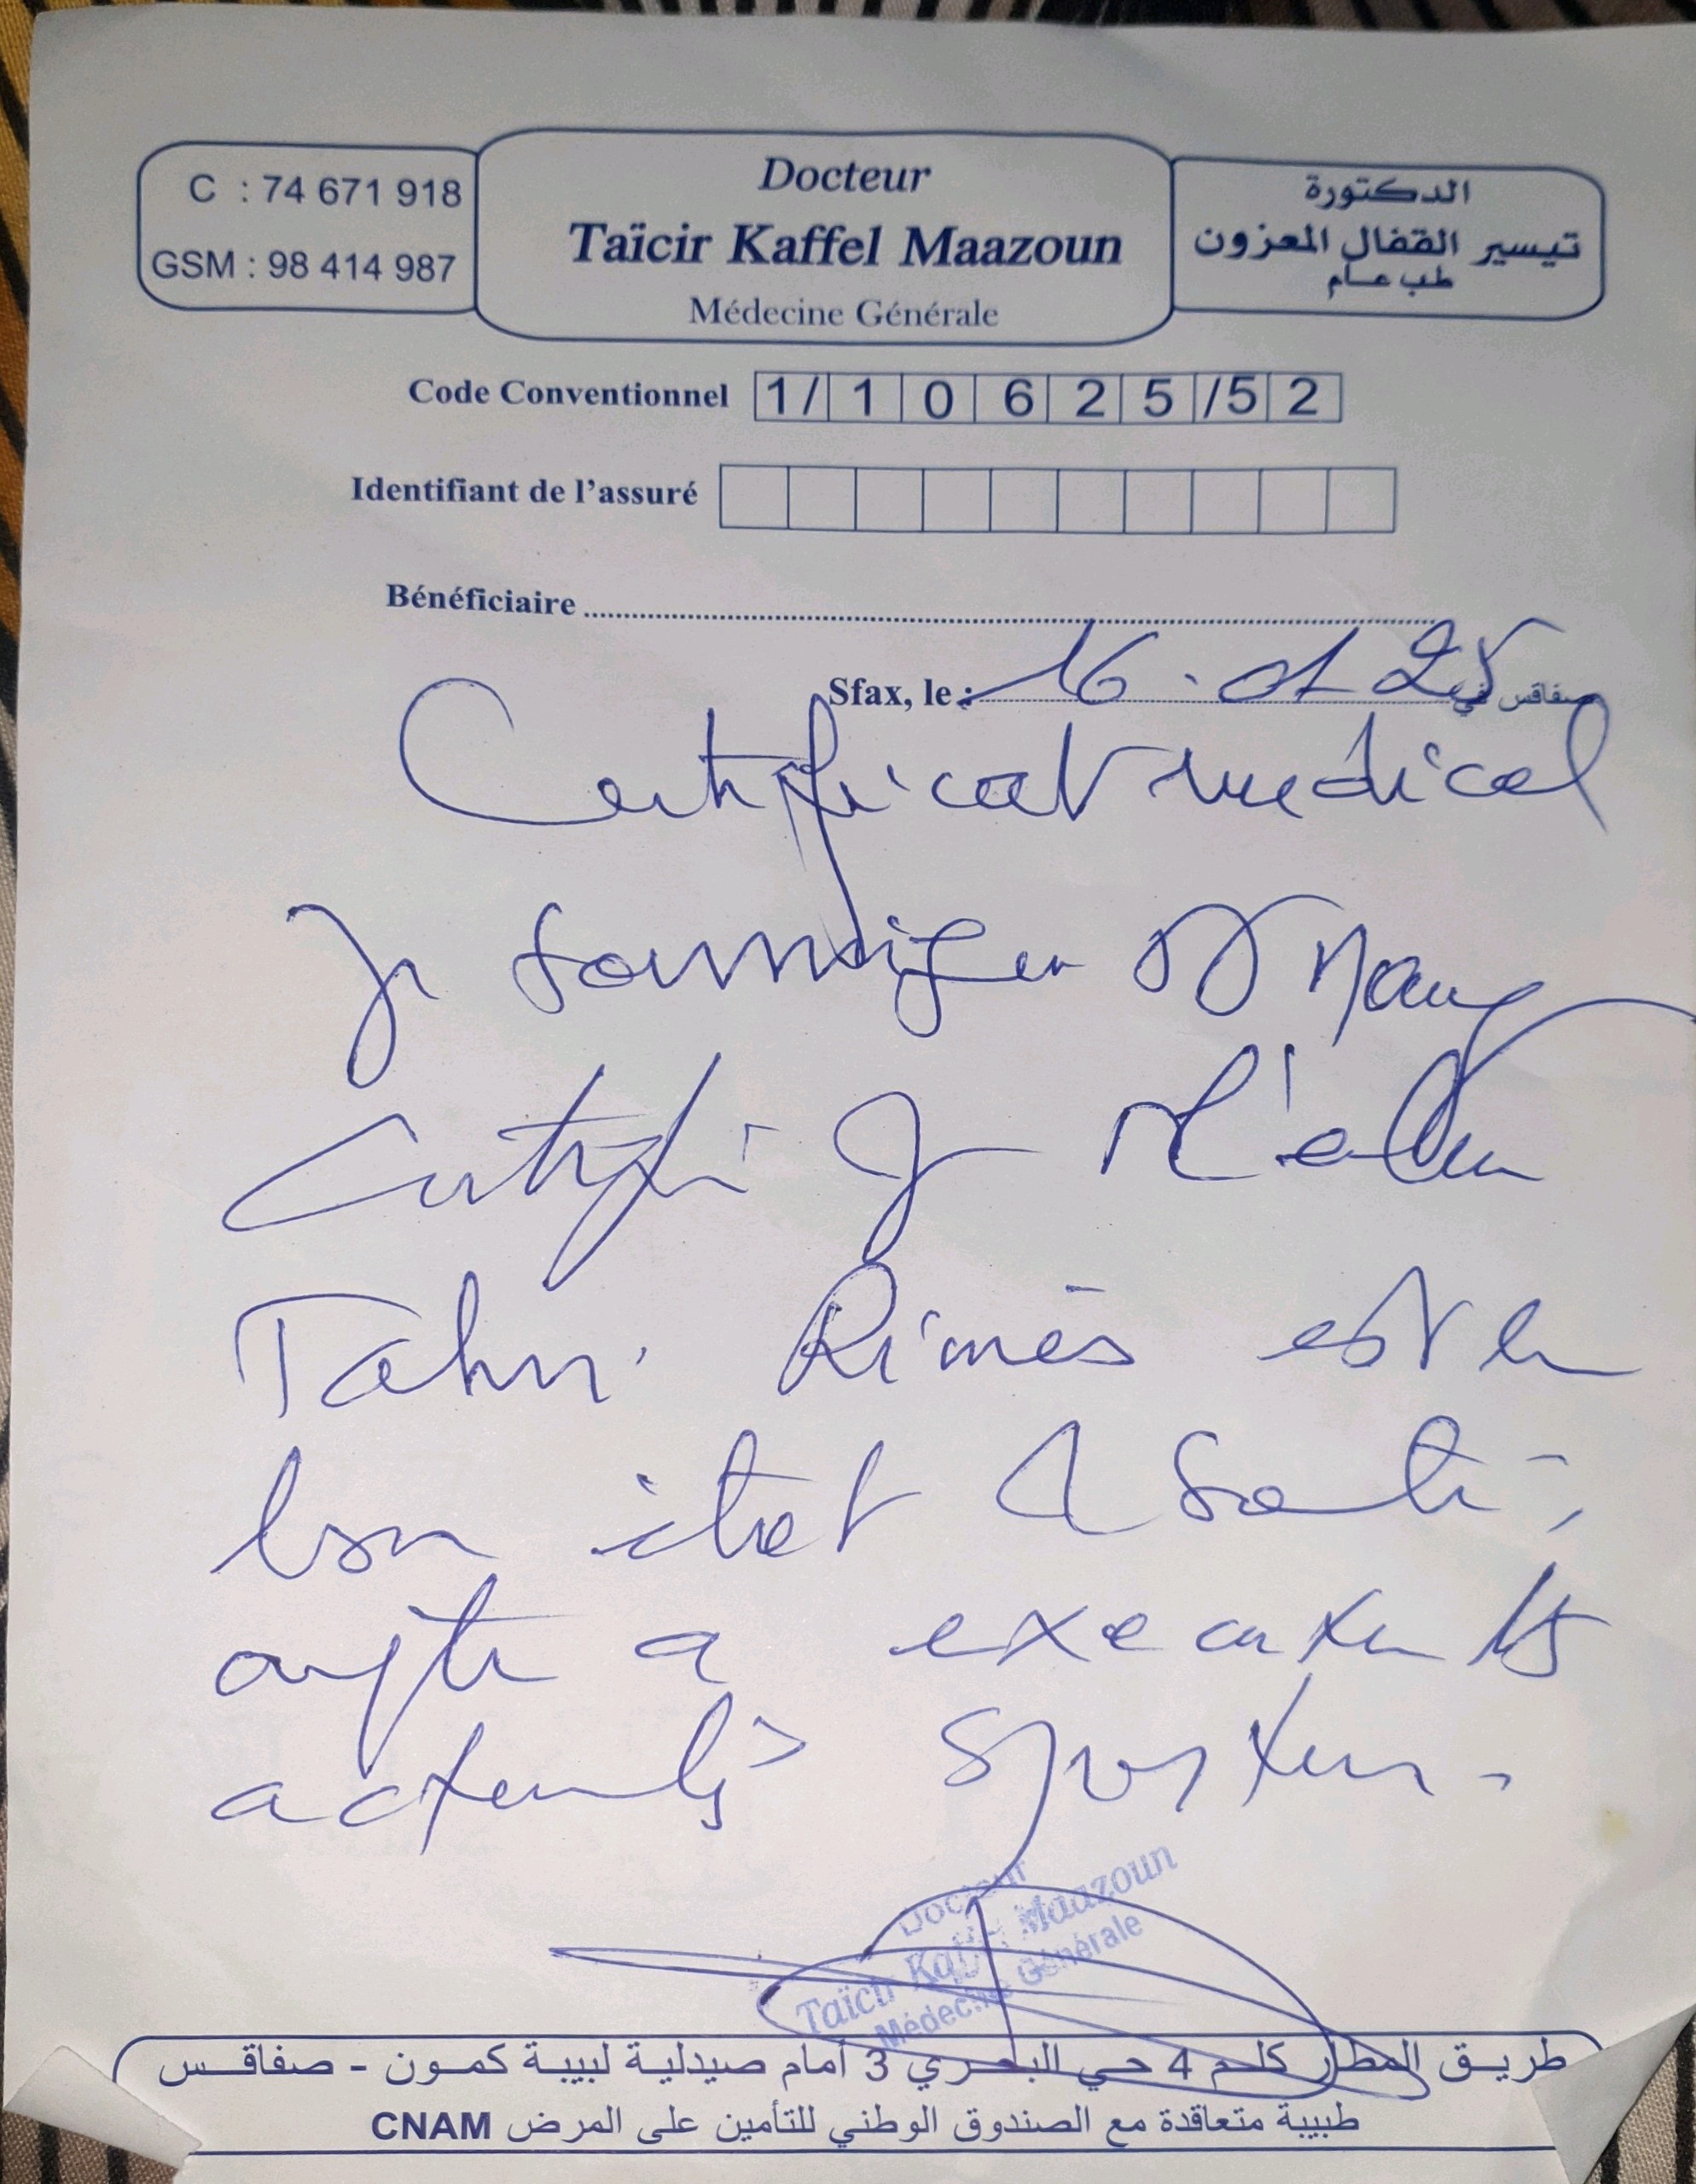 C : 74 671 918
GSM : 98 414 987
Docteur
Taïcir Kaffel Maazoun
Médecine Générale
الدكتورة
تيسير القفال المعزون
طب عام
Code Conventionnel 1/10625/52
Identifiant de l'assuré
Bénéficiaire
Sfax, le : 16. 01 25 صفاقس في
Certificat medical
Je soussigné Dr
certifie que l'élève
Tahri Rimes est en
bon état de santé,
apte a executer les
activités sportives.
Docteur
Taïcir Kaffel Maazoun
Médecine Générale
طريق المطار كلم 4 حي البحري 3 أمام صيدلية لبيبة كمون - صفاقس
طبيبة متعاقدة مع الصندوق الوطني للتأمين على المرض CNAM